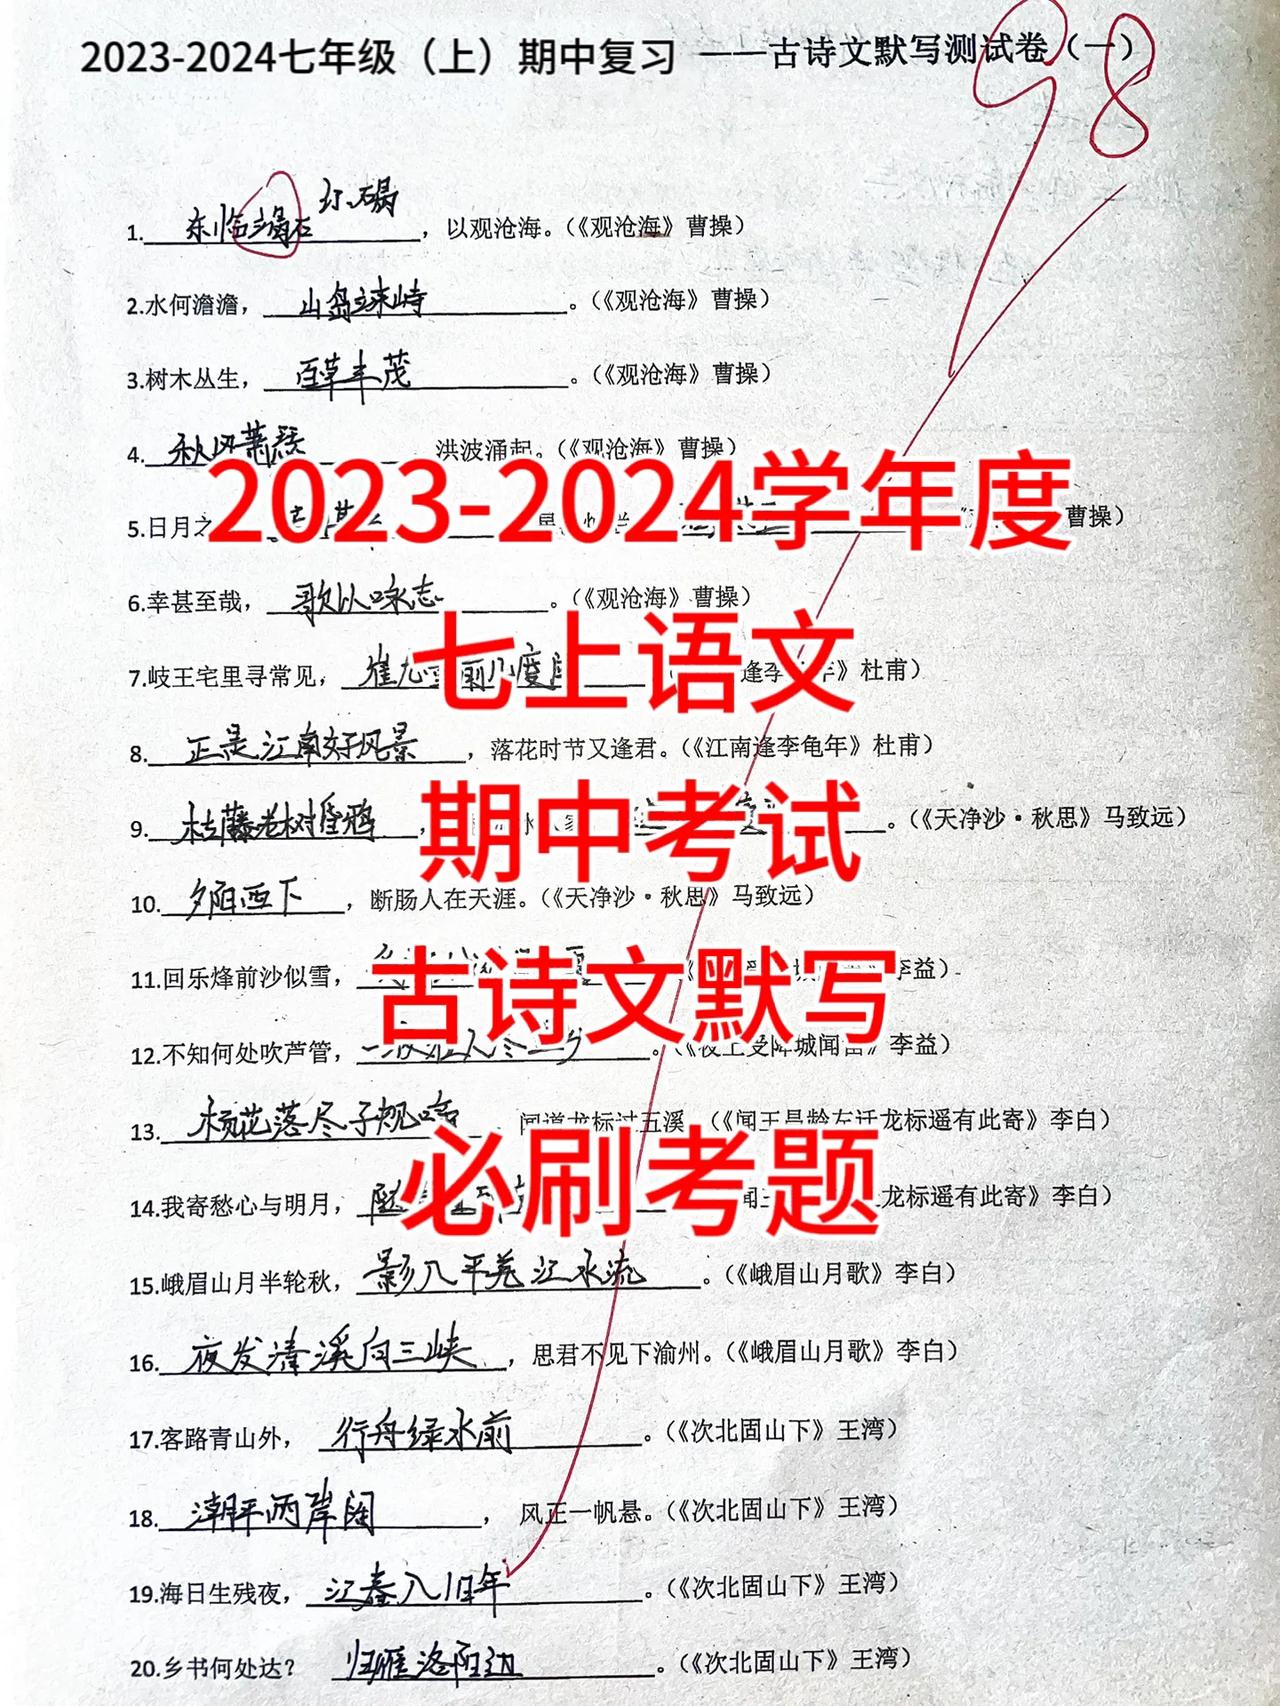 2023-2024七年级（上）期中复习 ——古诗文默写测试卷（一）
98
碣
1.东临碣石，以观沧海。（《观沧海》曹操）
2.水何澹澹，山岛竦峙。（《观沧海》曹操）
3.树木丛生，百草丰茂。（《观沧海》曹操）
4.秋风萧瑟 洪波涌起。（《观沧海》曹操）
2023-2024学年度
5.日月之 曹操）
6.幸甚至哉，歌以咏志。（《观沧海》曹操）
七上语文
7.岐王宅里寻常见，崔九堂前几度 杜甫）
8.正是江南好风景，落花时节又逢君。（《江南逢李龟年》杜甫）
期中考试
9.枯藤老树昏鸦，。（《天净沙·秋思》马致远）
10.夕阳西下，断肠人在天涯。（《天净沙·秋思》马致远）
古诗文默写
11.回乐烽前沙似雪， 李益）
12.不知何处吹芦管，。（《夜上受降城闻笛》李益）
13.杨花落尽子规啼 闻道龙标过五溪（《闻王昌龄左迁龙标遥有此寄》李白）
必刷考题
14.我寄愁心与明月， 龙标遥有此寄》李白）
15.峨眉山月半轮秋，影入平羌江水流。（《峨眉山月歌》李白）
16.夜发清溪向三峡，思君不见下渝州。（《峨眉山月歌》李白）
17.客路青山外，行舟绿水前。（《次北固山下》王湾）
18.潮平两岸阔，风正一帆悬。（《次北固山下》王湾）
19.海日生残夜，江春入旧年。（《次北固山下》王湾）
20.乡书何处达？归雁洛阳边。（《次北固山下》王湾）